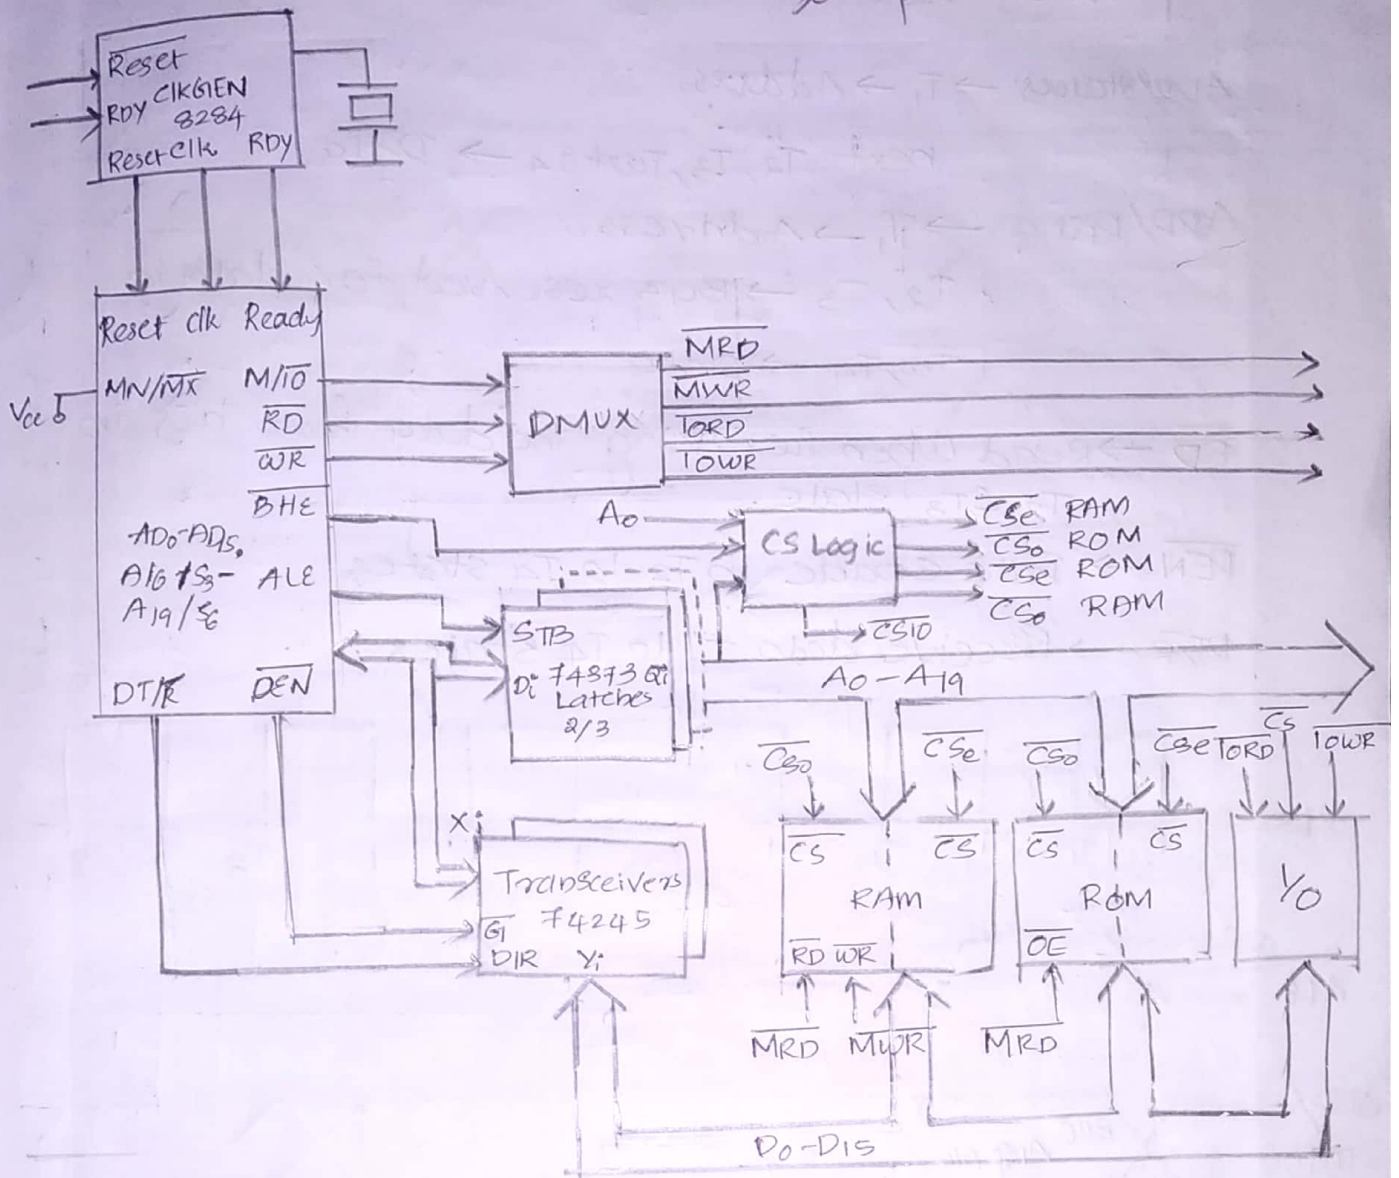 Reset
RDY CIKGEN
8284
Reset Clk RDY
Reset Clk Ready
Vcc MN/MX M/IO
RD
WR
BHE
AD0-AD15.
A16/S3-
A19/S6
ALE
DT/R DEN
DMUX
MRD
MWR
IORD
IOWR
A0
CS Logic
CSe RAM
CSo ROM
CSe ROM
CSo RAM
CSIO
STB
Di 74373 Qi
Latches
2/3
A0-A19
CSo CSe CSo CSe IORD CS IOWR
Xi
Transceivers
74245
G
DIR Yi
CS CS
RAM
RD WR
CS CS
ROM
OE
I/O
MRD MWR MRD
D0-D15